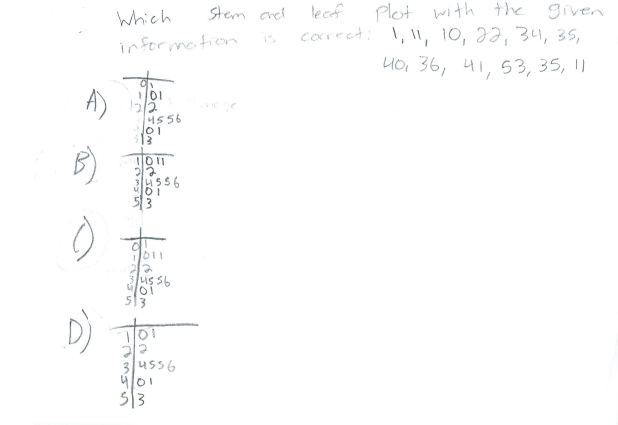 Which stem and leaf plot with the given
information is correct: 1, 11, 10, 22, 34, 35,
40, 36, 41, 53, 35, 11
A)
0|1
1|01
2|2
|4556
|01
|3
B)
1|011
2|2
3|4556
4|01
5|3
C)
0|1
1|011
2|2
3|4556
4|01
5|3
D)
1|01
2|2
3|4556
4|01
5|3